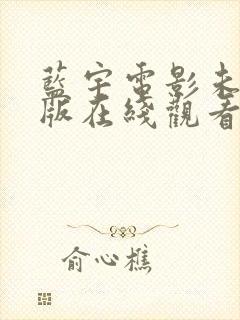 藍宇電影未
版在綫觀看
俞心樵